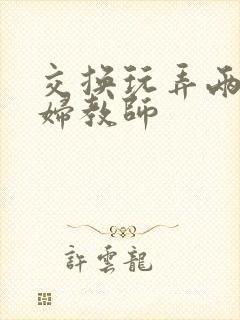 交换玩弄兩
婦教師
許雲龍